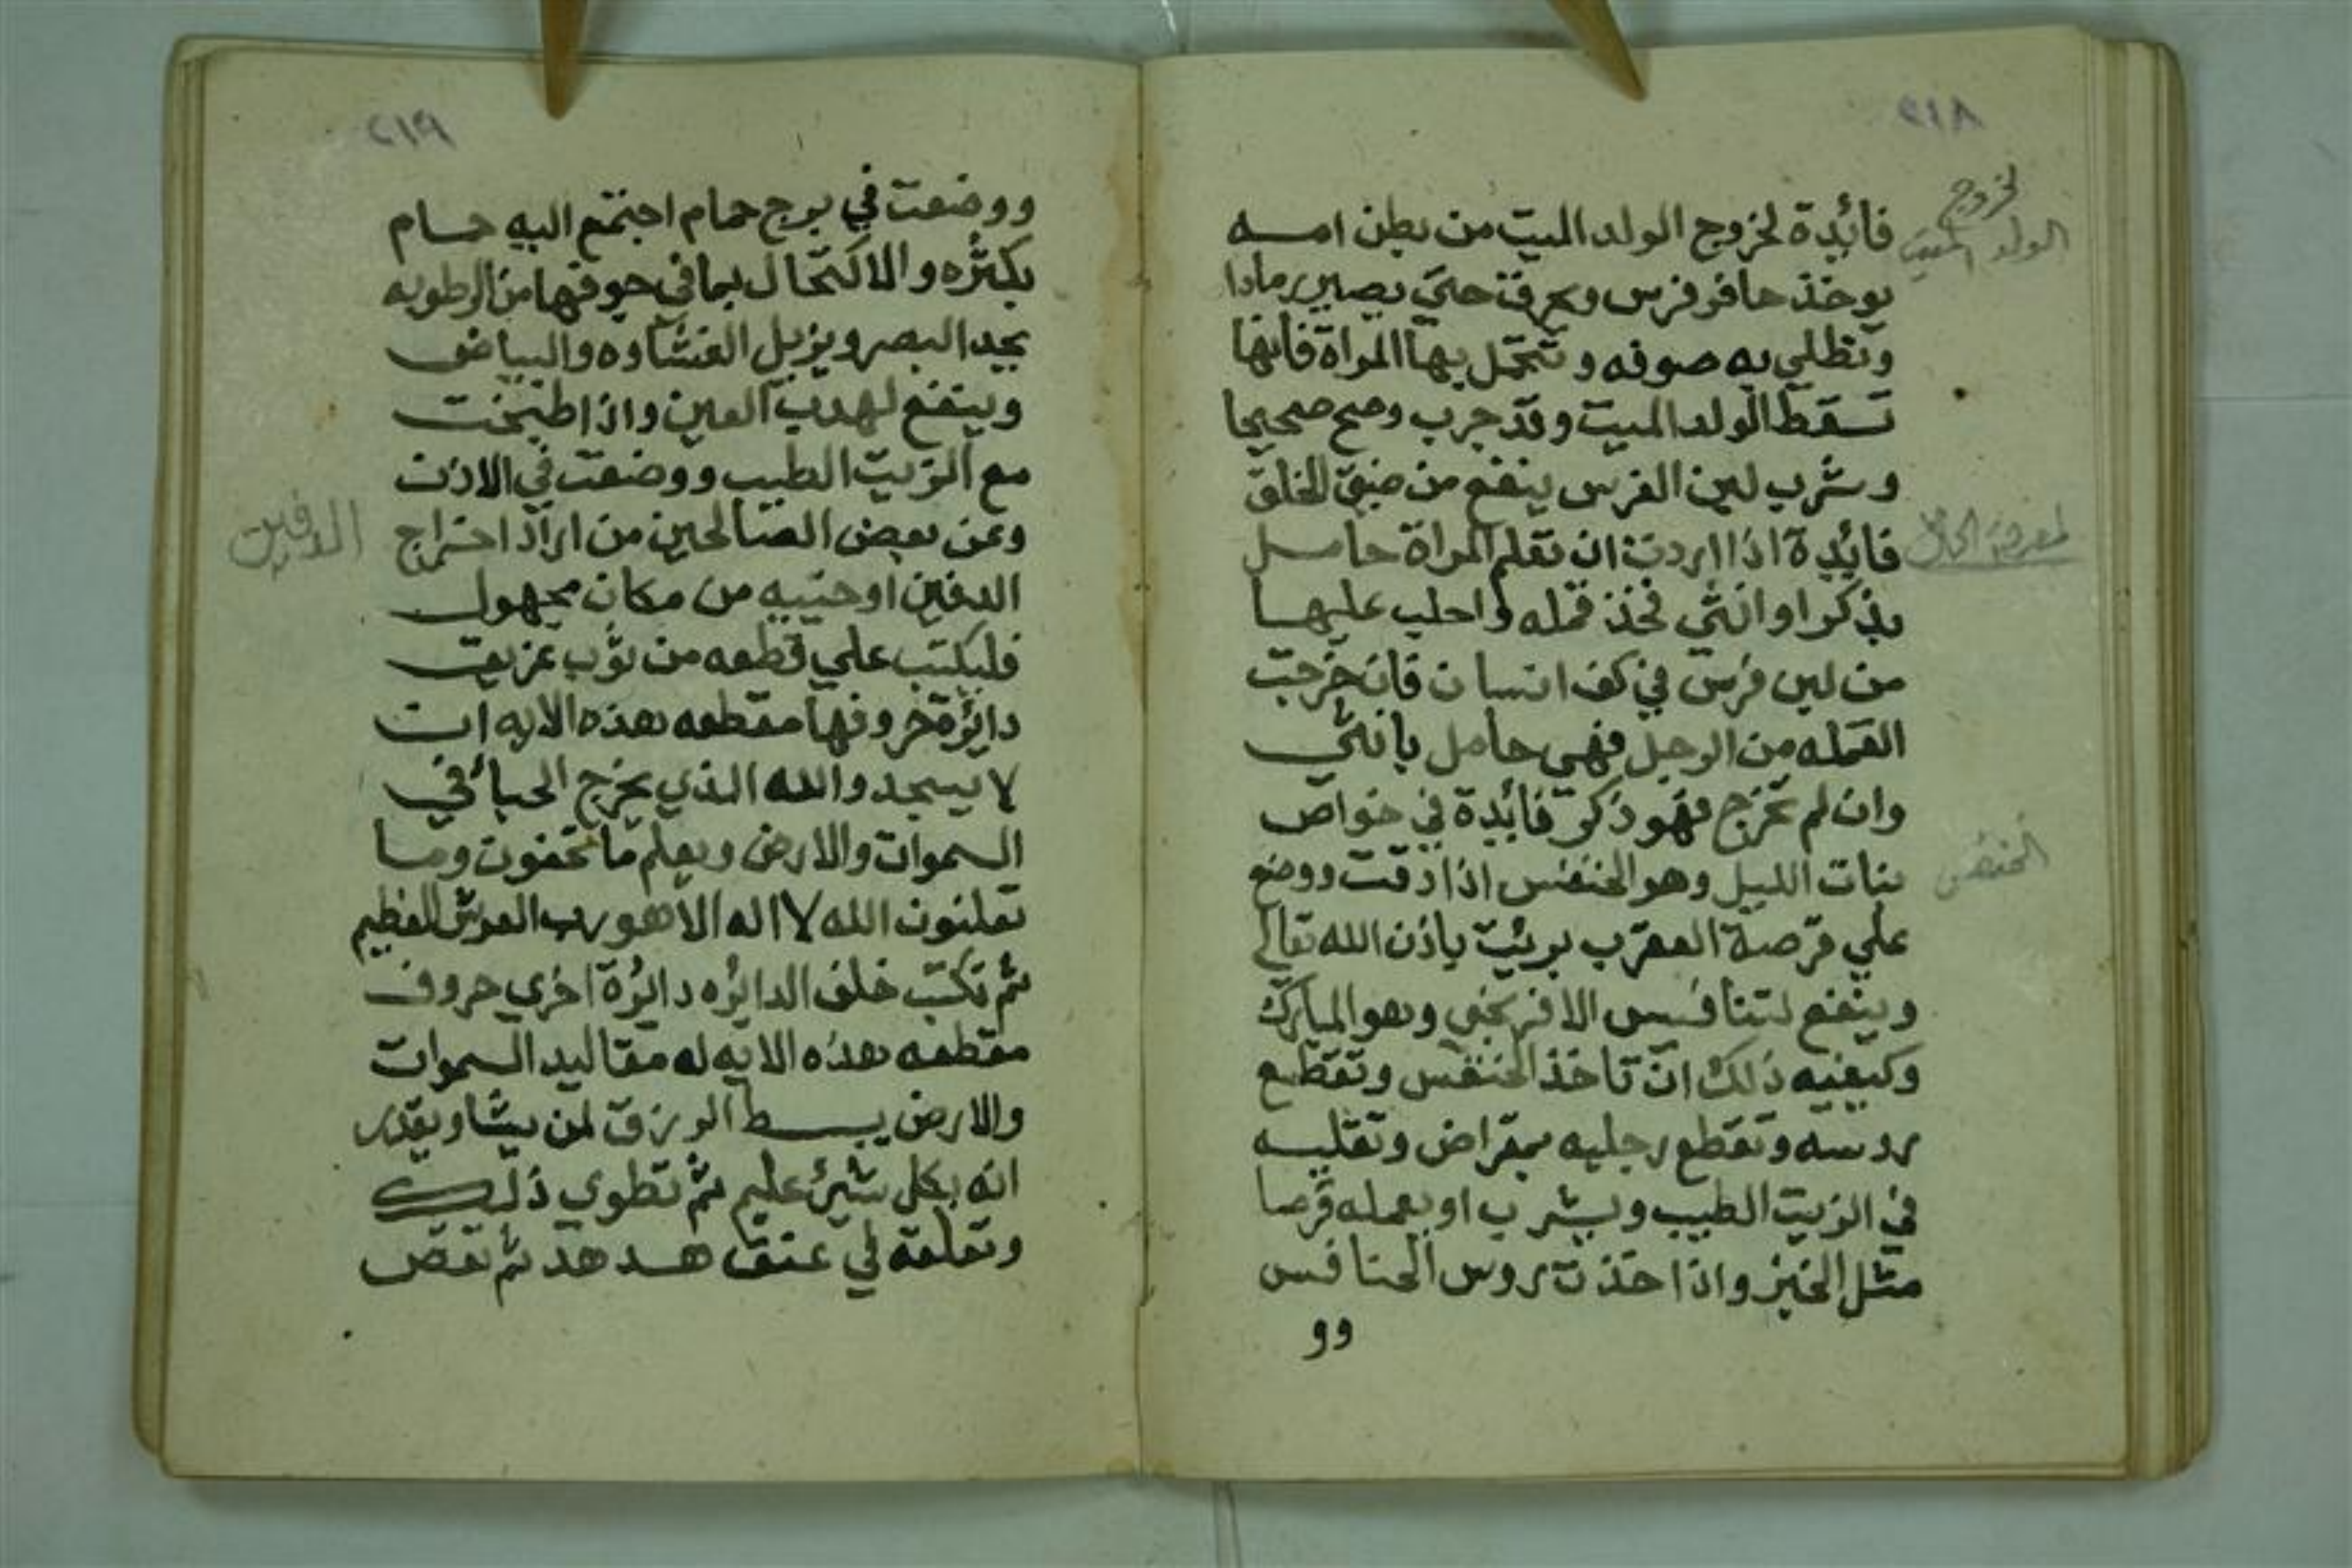 ٢١٨
لخروج
الولد الميت
فائدة لخروج الولد الميت من بطن امه
يوخذ حافر فرس ويحرق حتي يصير رمادا
وتطلي به صوفه وتتحمل بها المراة فانها
تسقط الولد الميت وقد جرب وصح صحيحا
وشرب لبن الفرس ينفع من ضيق الخلق
لمعرفة الحامل
فائدة اذا اردت ان تعلم المراة حامل
بذكر او انثي فخذ قمله واحلب عليها
من لبن فرس في كف انسان فان خرجت
القمله من الوحل فهي حامل بانثي
وان لم تخرج فهو ذكر فائدة في خواص
الخنفس
بنات الليل وهو الخنفس اذا دقت ووضع
علي قرصة العقرب بريت باذن الله تعالي
وينفع لتنافيس الافرنجي وهو المبارك
وكيفيه ذلك ان تاخذ الخنفس وتقطع
روسه وتقطع رجليه بمقراض وتقليه
في الزيت الطيب ويشرب او يعمله قرصا
مثل الخبز واذا اخذت روس الخنافس
وو
٢١٩
ووضعت في برج حمام اجتمع اليه حمام
بكثره والاكتحال بما في جوفها من الرطوبه
يجد البصر ويزيل الغشاوه والبياض
وينفع لهدب العين واذا طبخت
مع الزيت الطيب ووضعت في الاذن
وعن بعض الصالحين من اراد اخراج
الدفين
الدفين او خبيه من مكان مجهول
فليكتب علي قطعه من ثوب عزيق
دائرة حروفها مقطعه بهذه الايه ان
لا يسجدوا لله الذي يخرج الخبأ في
السموات والارض ويعلم ما تخفون وما
تعلنون الله لا اله الا هو رب العرش العظيم
ثم تكتب خلف الدائره دائرة اخري حروف
مقطعه بهذه الايه له مقاليد السموات
والارض يبسط الرزق لمن يشا ويقدر
انه بكل شيء عليم ثم تطوي ذلك
وتعلقه في عنق هدهد ثم تقص